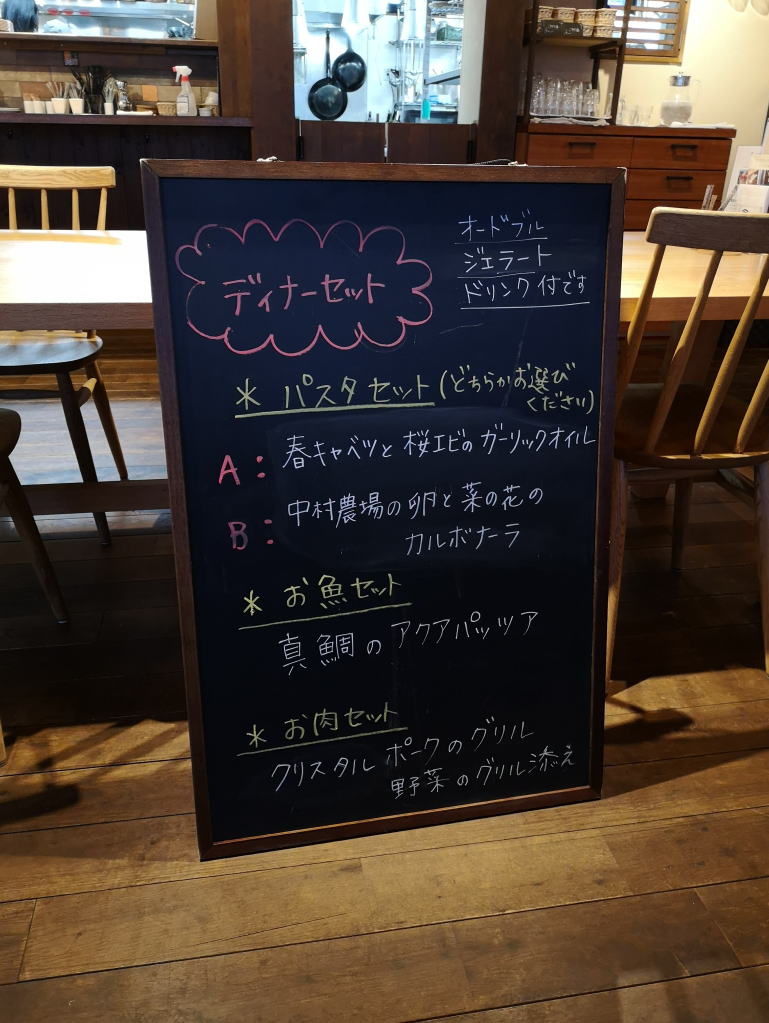 ディナーセット
オードブル
ジェラート
ドリンク付です
* パスタセット(どちらかお選び
ください)
A: 春キャベツと桜エビのガーリックオイル
B: 中村農場の卵と菜の花の
カルボナーラ
* お魚セット
真鯛のアクアパッツア
* お肉セット
クリスタルポークのグリル
野菜のグリル添え